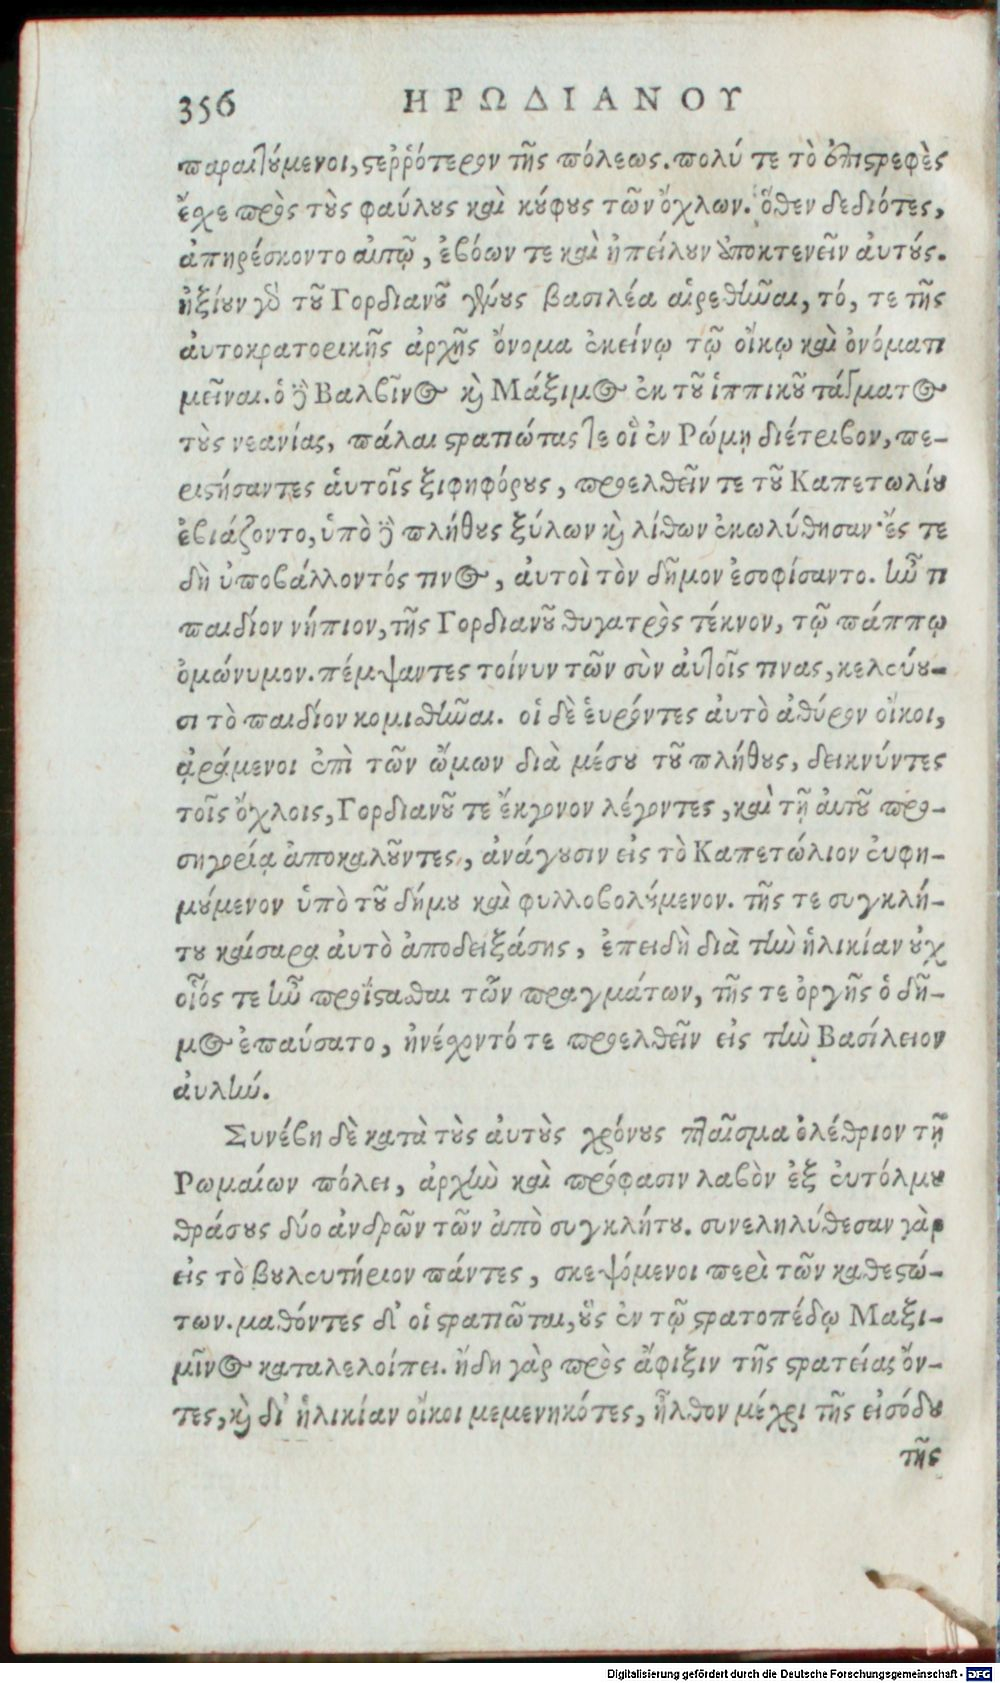 356 ΗΡΩΔΙΑΝΟΥ
παραιτούμενοι, στερρότερον τῆς πόλεως. πολύ τε τὸ ἐπιστρεφὲς
ἔχε πρὸς τοὺς φαύλους καὶ κύφους τῶν ὄχλων. ὅθεν δεδιότες,
ἀπηρέσκοντο αὐτῷ, ἐβόων τε καὶ ἠπείλουν ἀποκτενεῖν αὐτούς.
ἠξίουν γδ τοῦ Γορδιανοῦ γένους βασιλέα αἱρεθῆναι, τό, τε τῆς
ἀυτοκρατορικῆς ἀρχῆς ὄνομα ἐκείνῳ τῷ οἴκῳ καὶ ὀνόματι
μεῖναι. ὁ δὲ Βαλβῖνος καὶ Μάξιμος ἐκ τοῦ ἱππικοῦ τάγματος
τοὺς νεανίας, πάλαι στρατιώτας τε οἳ ἐν Ρώμῃ διέτριβον, πε-
ριστήσαντες ἁυτοῖς ξιφηφόρους, προελθεῖν τε τοῦ Καπετωλίου
ἐβιάζοντο, ὑπὸ δὲ πλήθους ξύλων καὶ λίθων ἐκωλύθησαν· ἔς τε
δὴ ὑποβάλλοντός τινος, ἀυτοὶ τὸν δῆμον ἐσοφίσαντο. ἦν τι
παιδίον νήπιον, τῆς Γορδιανοῦ θυγατρὸς τέκνον, τῷ πάππῳ
ὁμώνυμον. πέμψαντες τοίνυν τῶν σὺν ἀυτοῖς τινας, κελεύου-
σι τὸ παιδίον κομισθῆναι. οἱ δὲ ἑυρόντες ἀυτὸ ἀθύρον οἴκοι,
ἀράμενοι ἐπὶ τῶν ὤμων διὰ μέσου τοῦ πλήθους, δεικνύντες
τοῖς ὄχλοις, Γορδιανοῦ τε ἔκγονον λέγοντες, καὶ τῇ ἀυτοῦ προ-
σηγορίᾳ ἀποκαλοῦντες, ἀνάγουσιν εἰς τὸ Καπετώλιον ἐυφη-
μούμενον ὑπὸ τοῦ δήμου καὶ φυλλοβολούμενον. τῆς τε συγκλή-
του καίσαρα ἀυτὸ ἀποδειξάσης, ἐπειδὴ διὰ τὴν ἡλικίαν οὐχ
οἷός τε ἦν προΐστασθαι τῶν πραγμάτων, τῆς τε ὀργῆς ὁ δῆ-
μος ἐπαύσατο, ἠνέχοντό τε προελθεῖν εἰς τὴν Βασίλειον
ἀυλήν.
Συνέβη δὲ κατὰ τοὺς ἀυτοὺς χρόνους πλαῖσμα ὀλέθριον τῇ
Ρωμαίων πόλει, ἀρχὴν καὶ πρόφασιν λαβὸν ἐξ ἐυτόλμου
θράσους δύο ἀνδρῶν τῶν ἀπὸ συγκλήτου. συνεληλύθεσαν γὰρ
εἰς τὸ βουλευτήριον πάντες, σκεψόμενοι περὶ τῶν καθεστώ-
των. μαθόντες δ' οἱ στρατιῶται, οὓς ἐν τῷ στρατοπέδῳ Μαξι-
μῖνος καταλελοίπει. ἤδη γὰρ πρὸς ἄφιξιν τῆς στρατείας ὄν-
τες, καὶ δι' ἡλικίαν οἴκοι μεμενηκότες, ἦλθον μέχρι τῆς εἰσόδου
τῆς
Digitalisierung gefördert durch die Deutsche Forschungsgemeinschaft - DFG